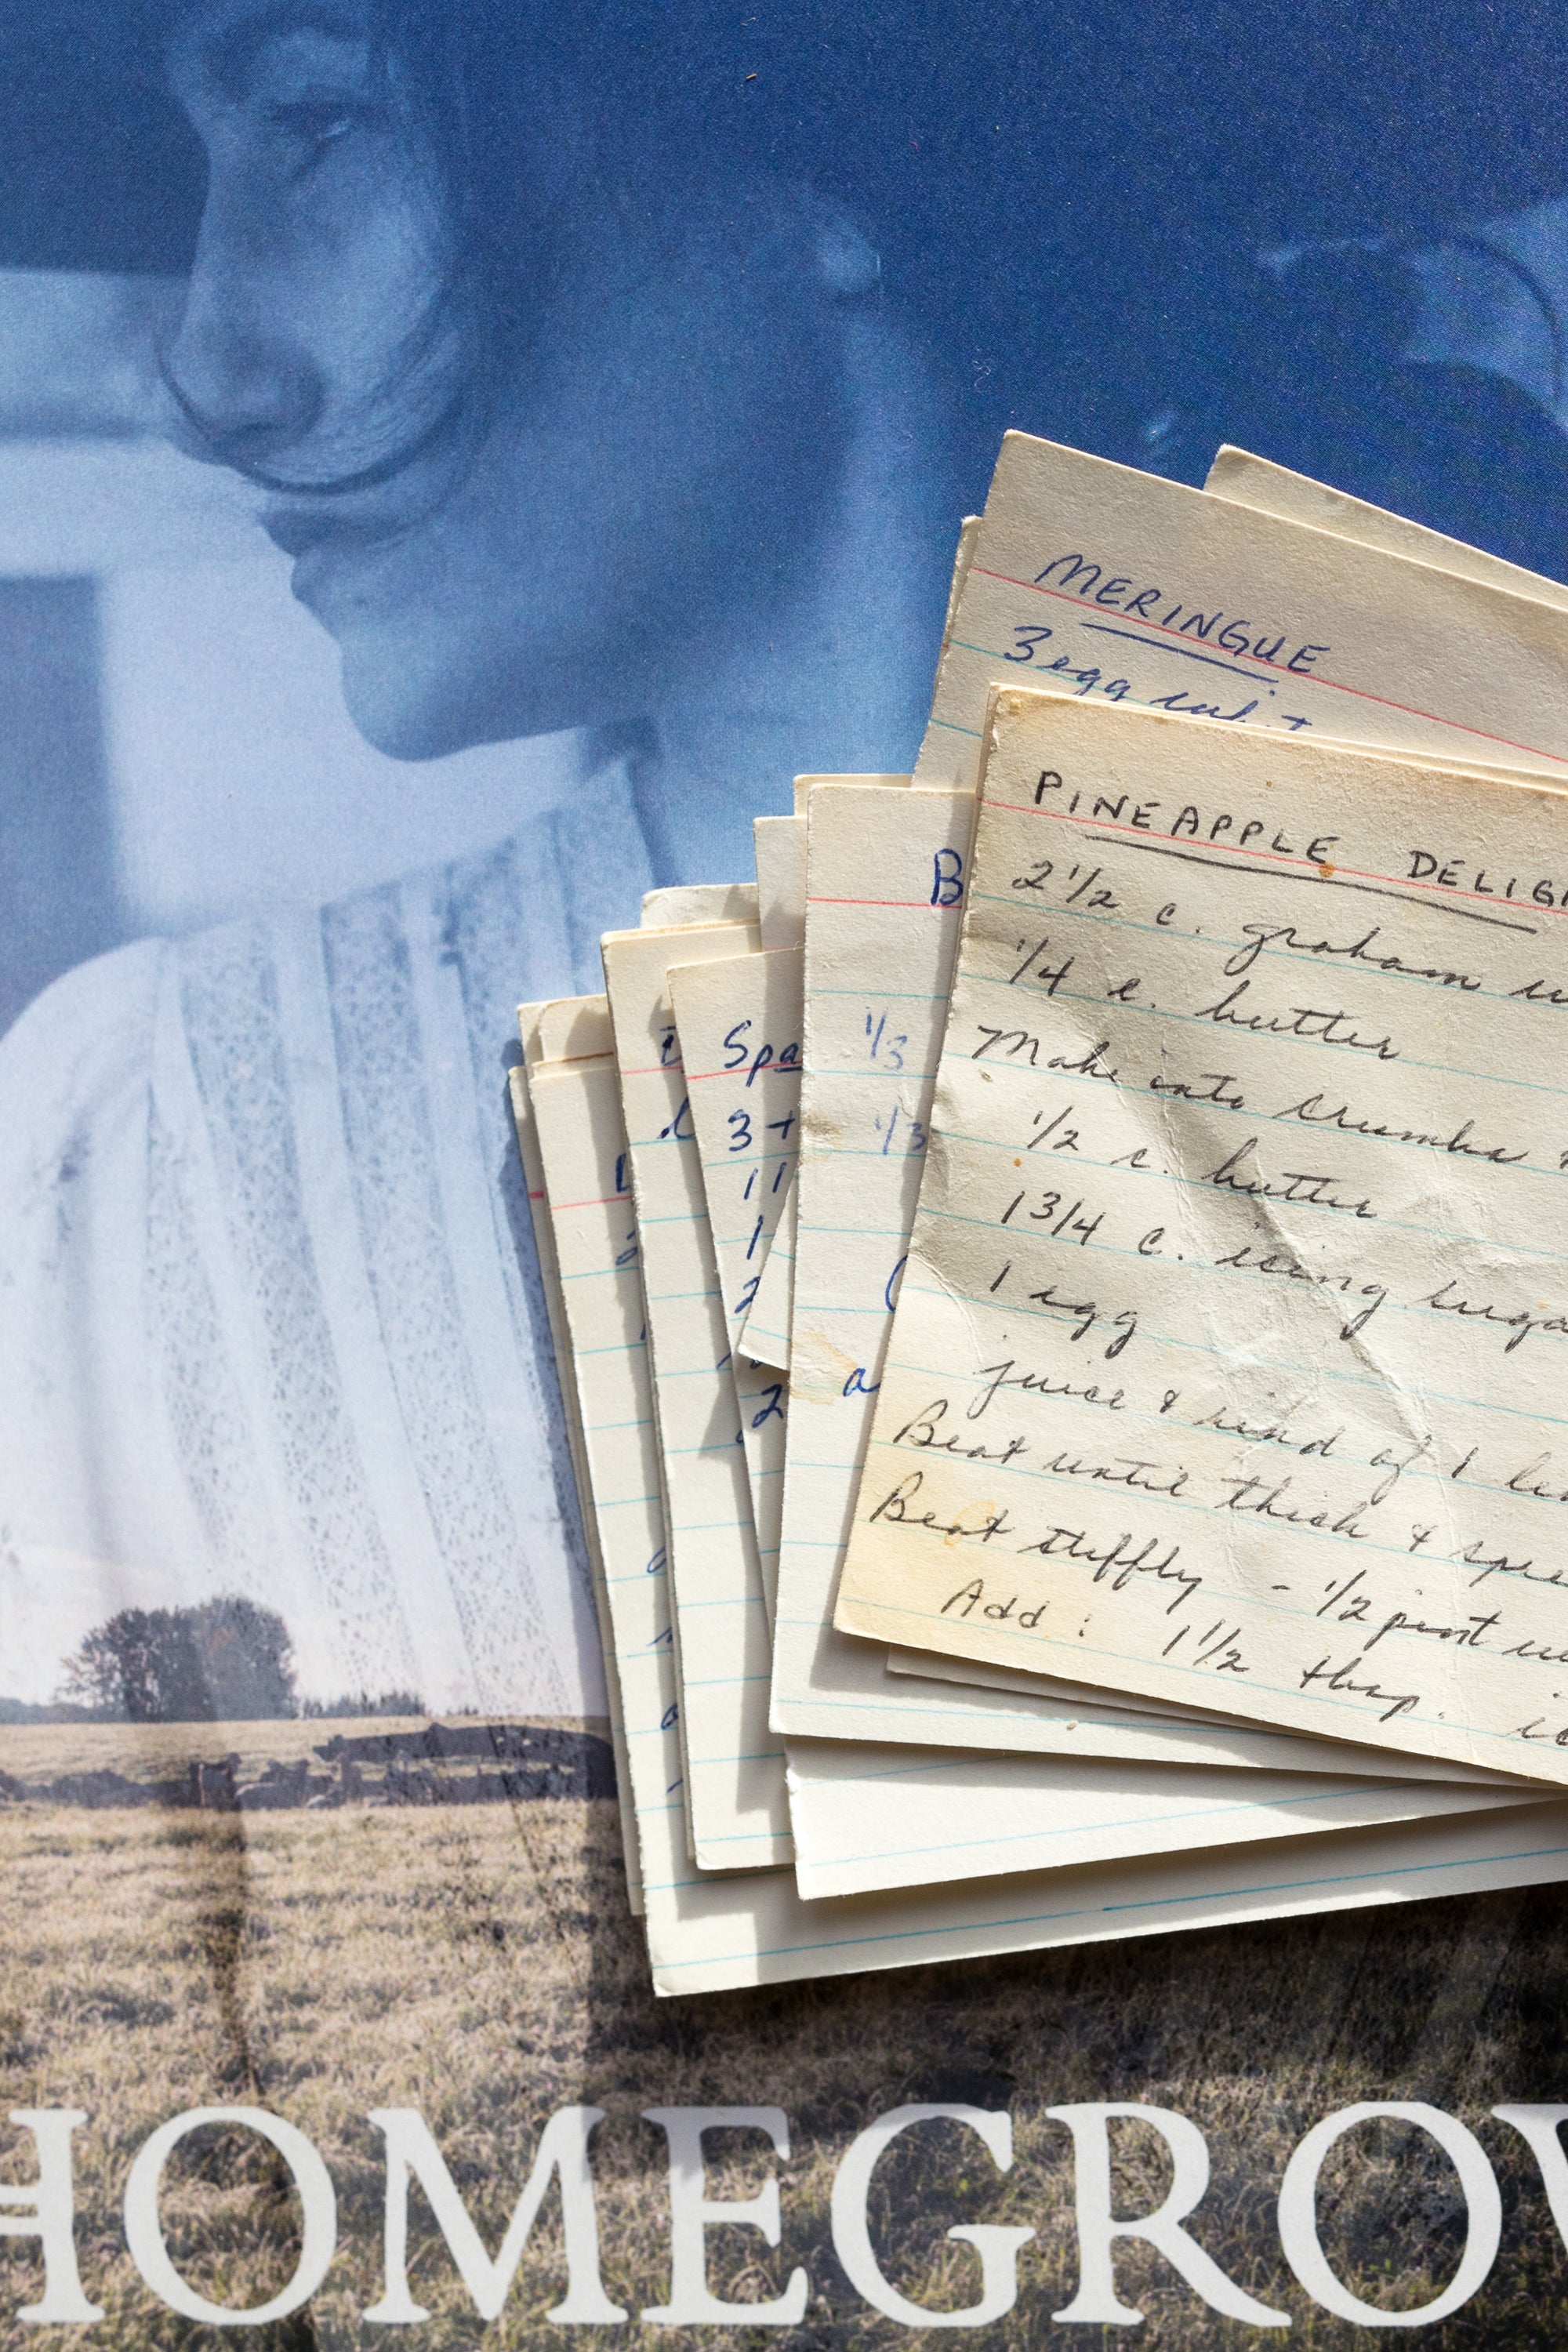 MERINGUE
3 egg
PINEAPPLE DELIGH
2 1/2 c. graham w
1/4 c. butter
Make into crumbs
1/2 c. butter
1 3/4 c. icing suga
1 egg
juice & rind of 1 le
Beat until thick & spre
Beat stiffly - 1/2 pint w
Add: 1 1/2 tbsp. ic
B
1/3
1/3
a
Spa
3 +
11
1
2
2
HOMEGROW